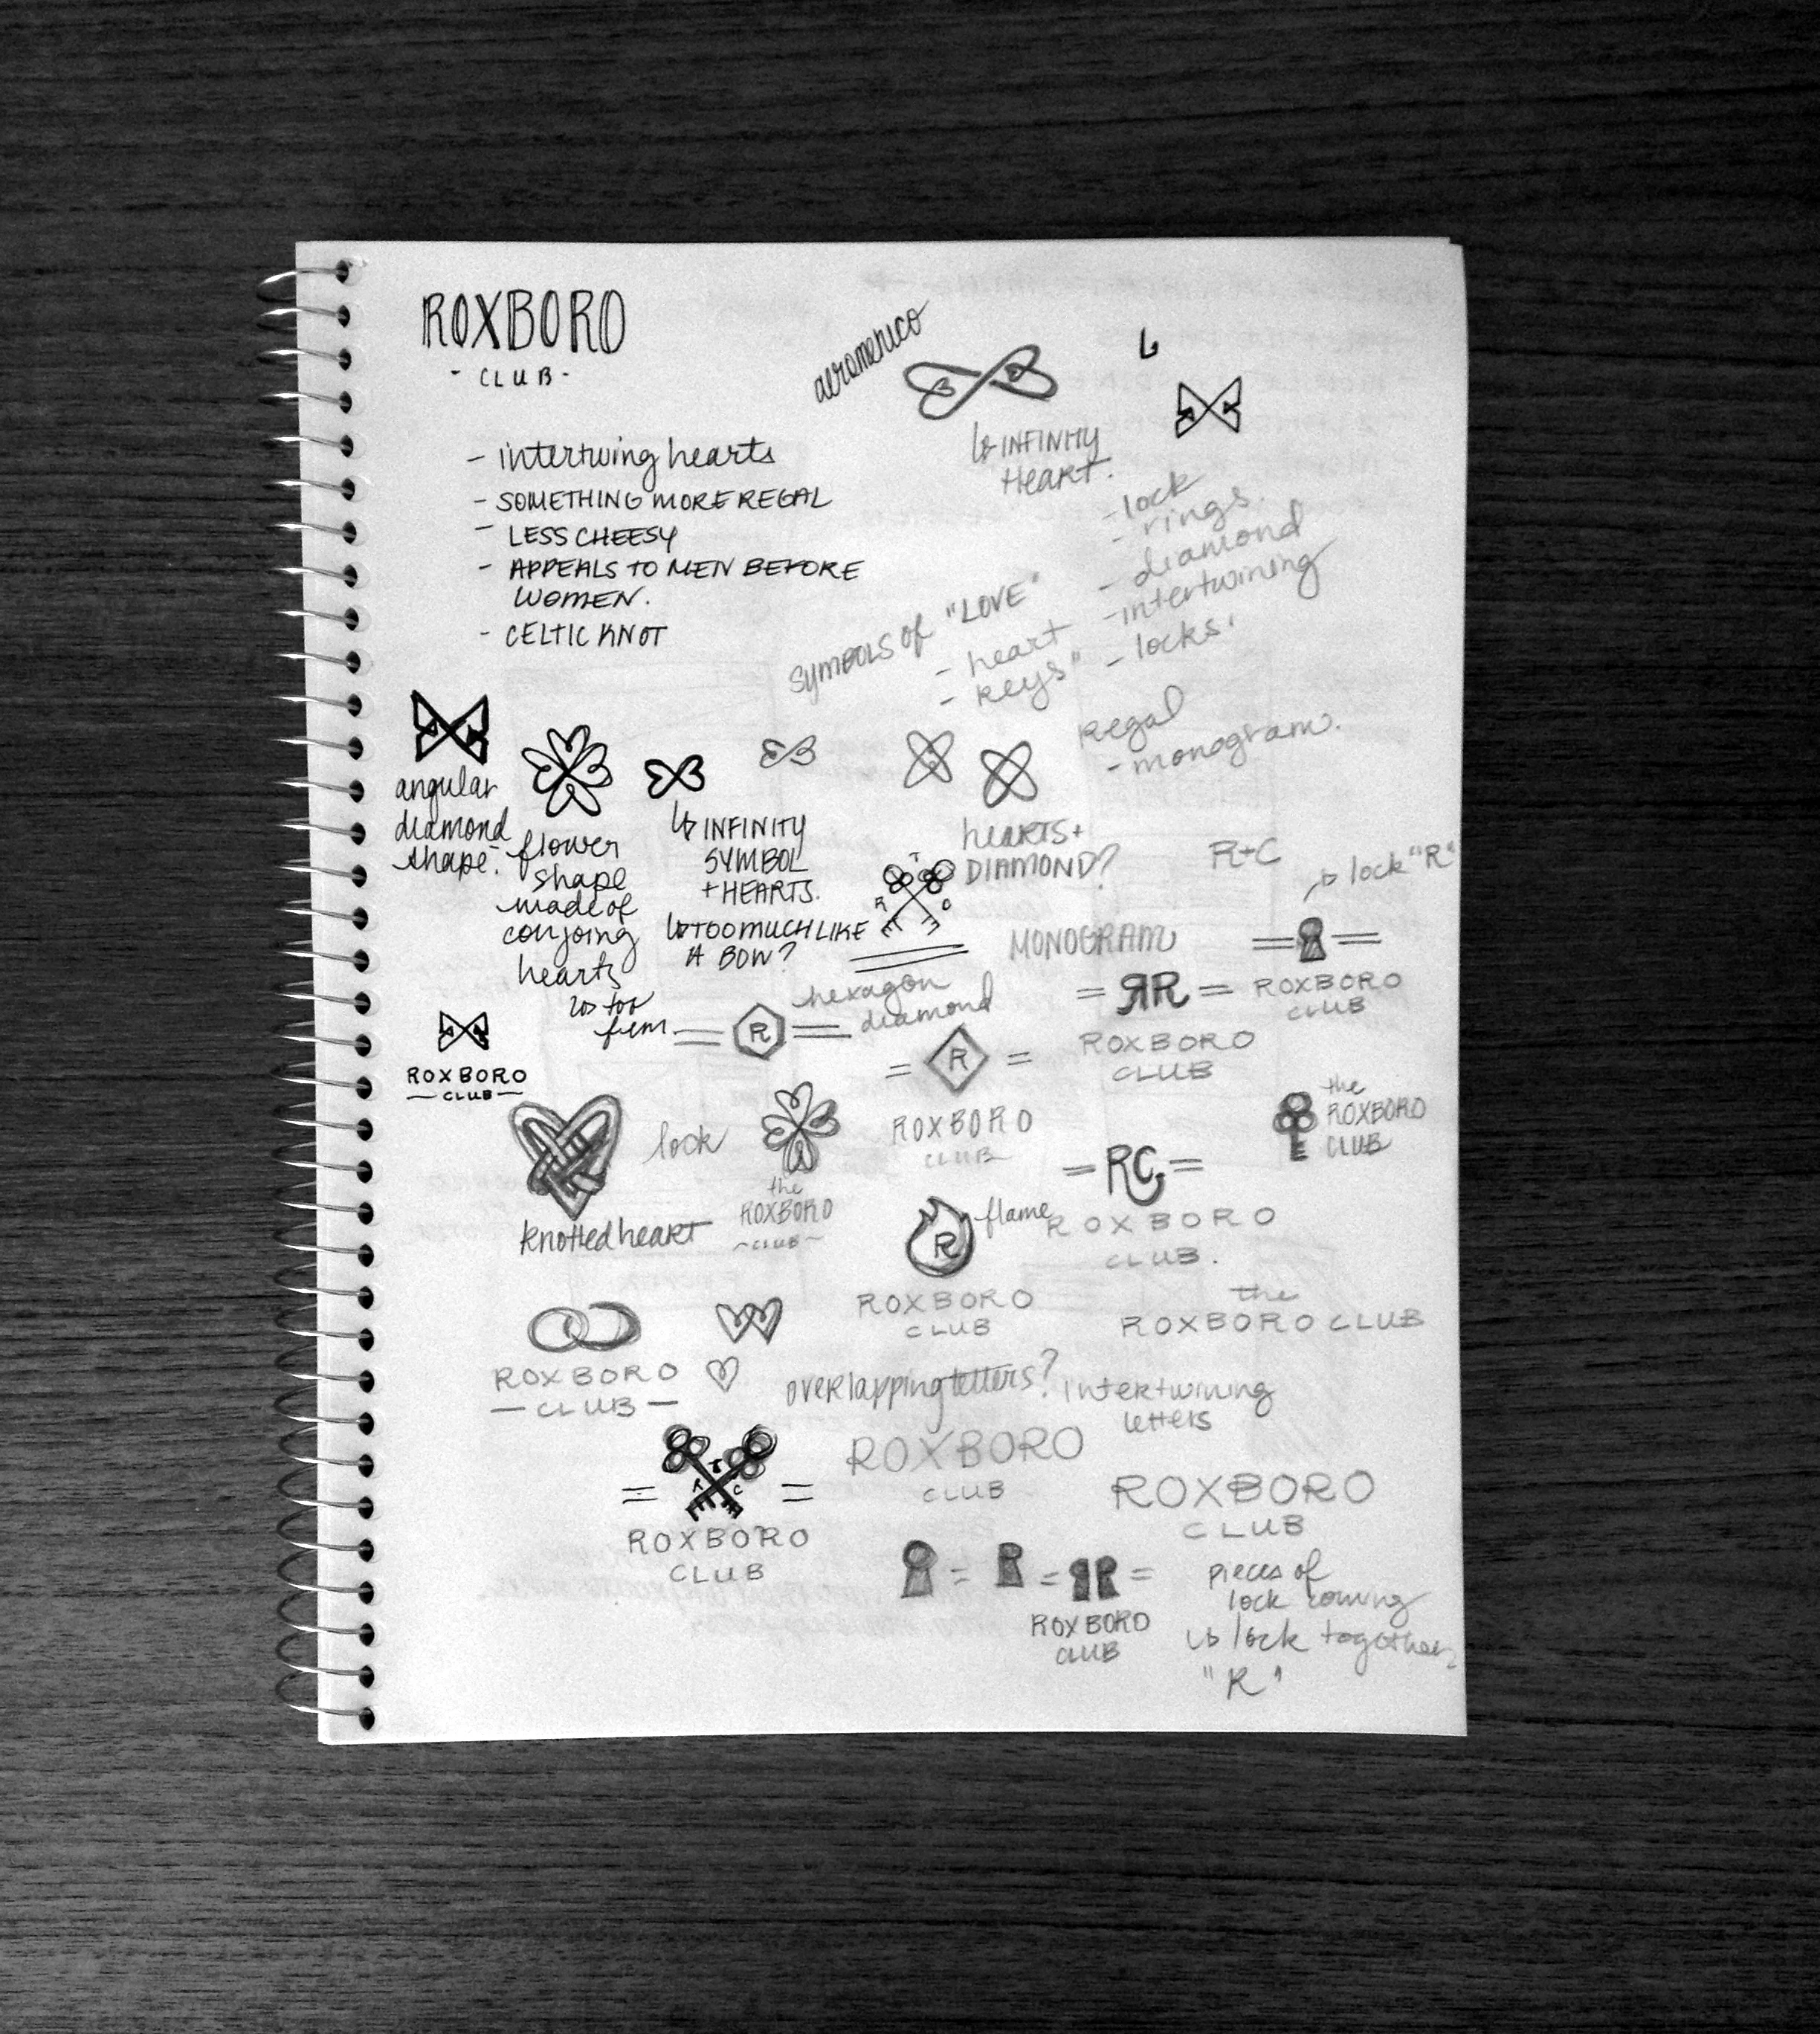 ROXBORO
- CLUB -
aeromexico
- intertwing hearts
- SOMETHING MORE REGAL
- LESS CHEESY
- APPEALS TO MEN BEFORE
WOMEN.
- CELTIC KNOT
INFINITY
HEART.
SYMBOLS of "LOVE"
- heart
- keys"
- lock
- rings.
- diamond
- intertwining
- locks.
Regal
- monogram.
angular
diamond
shape.
flower
shape
made of
conjoing
hearts
too
fem
INFINITY
SYMBOL
+ HEARTS.
TOO MUCH LIKE
A BOW?
hearts +
DIAMOND?
T
R C
R+C
lock "R"
MONOGRAM
ROXBORO
CLUB
RR
ROXBORO
CLUB
hexagon
diamond
R
R
ROXBORO
CLUB
ROXBORO
- CLUB -
knotted heart
lock
the
ROXBORO
- CLUB -
the
ROXBORO
CLUB
RC
ROXBORO
CLUB.
flame
R
ROXBORO
CLUB
the
ROXBORO CLUB
ROXBORO
- CLUB -
overlapping letters?
Intertwining
letters
T
R C
ROXBORO
CLUB
ROXBORO
CLUB
ROXBORO
CLUB
ROXBORO
CLUB
pieces of
lock coming
together.
lock
"R"